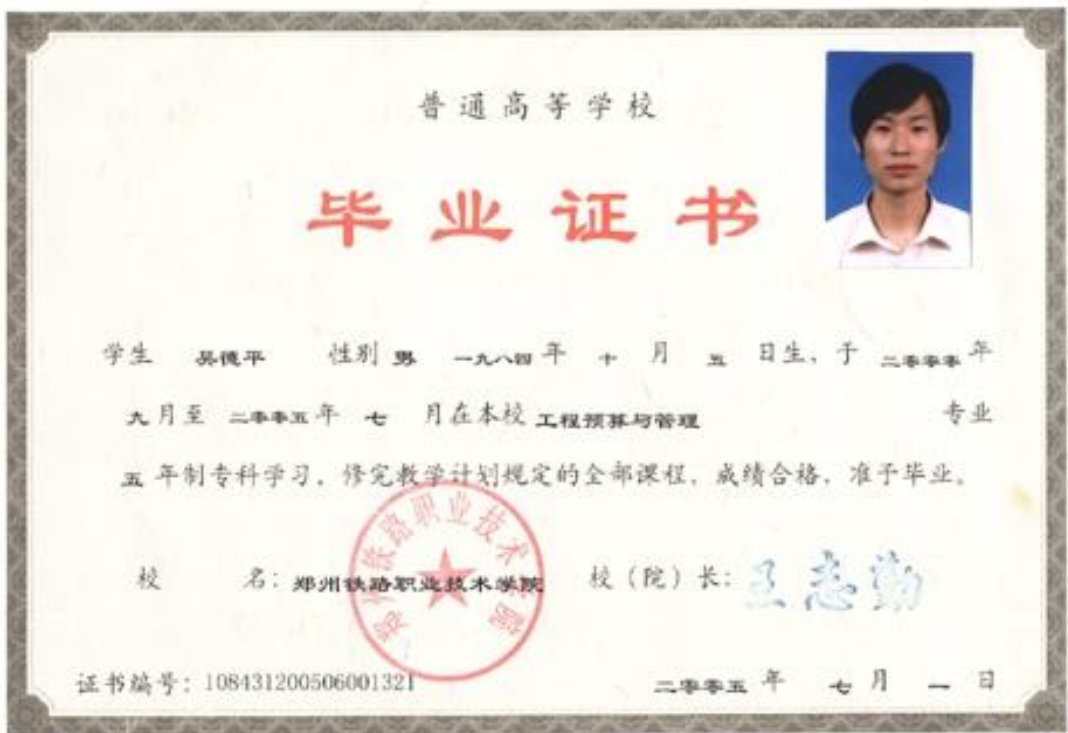 普通高等学校
毕业证书
学生 吴德平 性别 男 一九八四 年 十 月 五 日生、于 二零零零 年
九 月至 二零零五 年 七 月在本校 工程预算与管理 专业
五 年制专科学习，修完教学计划规定的全部课程，成绩合格，准予毕业。
校 名：郑州铁路职业技术学院 校（院）长：王志勤
郑州铁路职业技术学院
证书编号：108431200506001321 二零零五 年 七 月 一 日